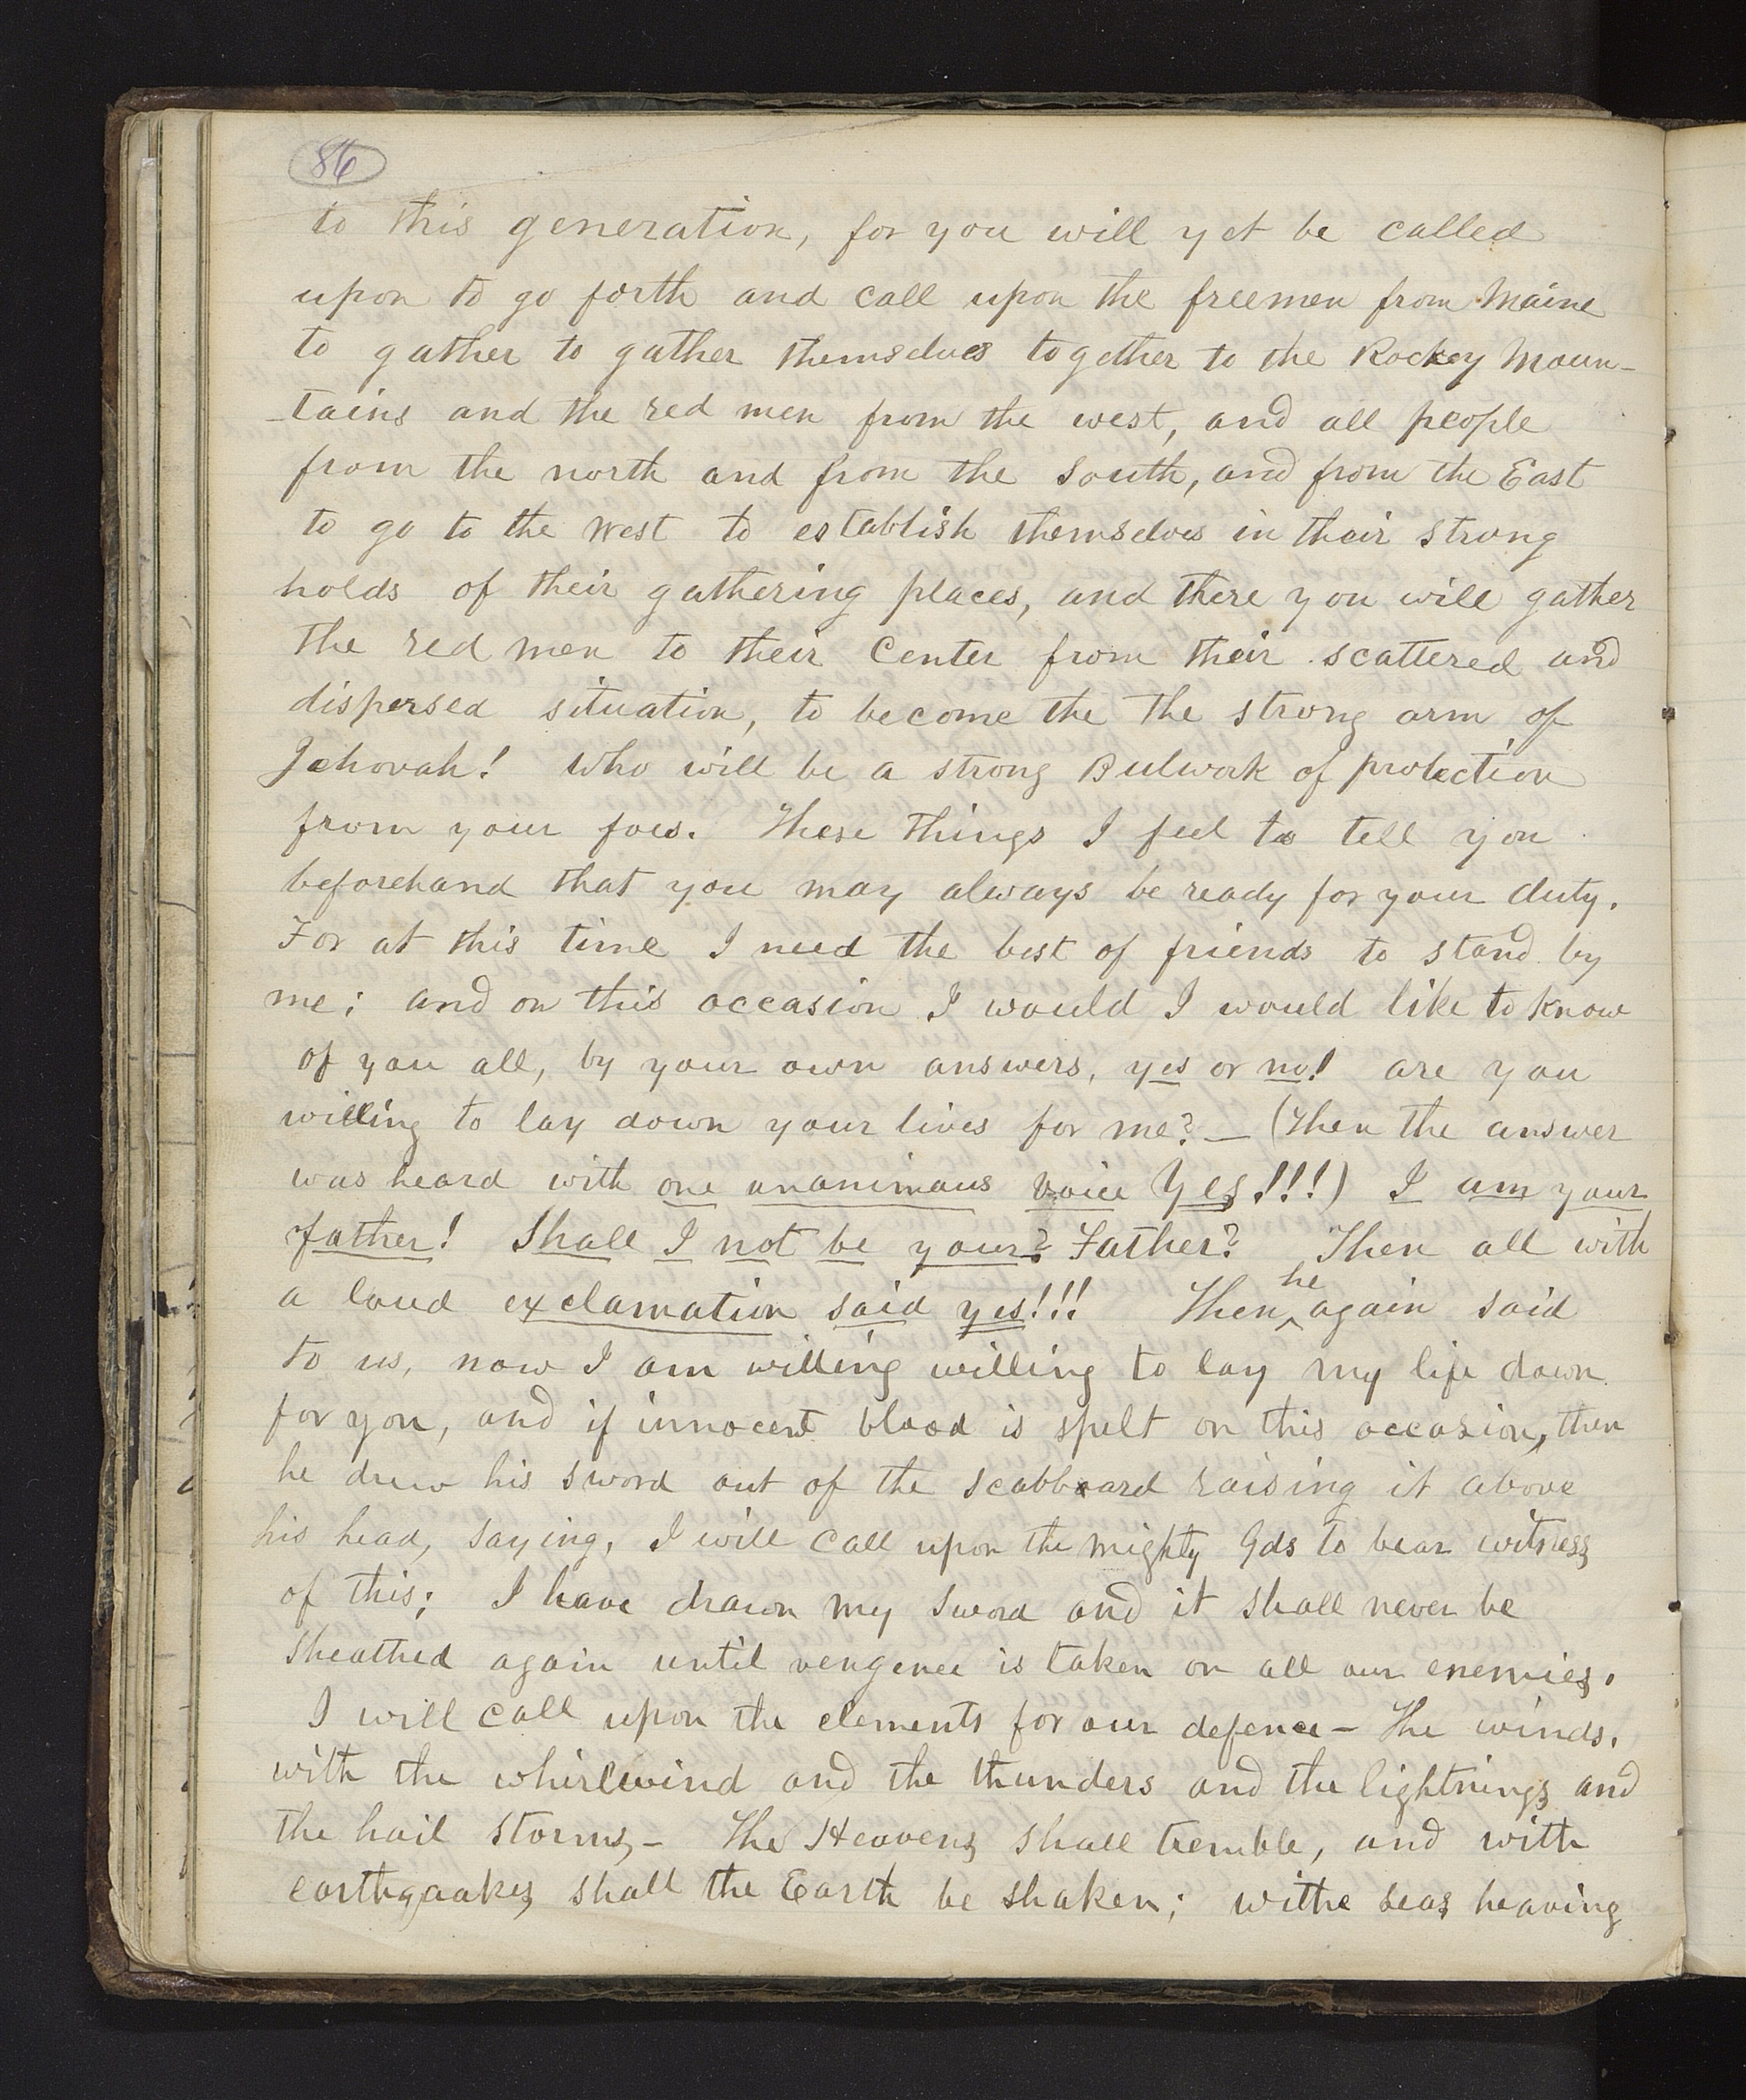 86
to this generation, for you will yet be called
upon to go forth and call upon the freemen from Maine
to gather to gather themselves together to the Rockey Moun-
-tains and the red men from the west, and all people
from the north and from the South, and from the East
to go to the West to establish themselves in their strong
holds of their gathering places, and there you will gather
the red men to their Center from their scattered and
dispersed situation, to become the the strong arm of
Jehovah! Who will be a strong Bulwork of protection
from your foes. These things I feel to tell you
beforehand that you may always be ready for your duty.
For at this time I need the best of friends to stand by
me; and on this occasion I would I would like to know
of you all, by your own answers, yes or no! are you
willing to lay down your lives for me? — (Then the answer
was heard with one unanimous voice Yes!!!) I am your
father! Shall I not be your? Father? Then all with
a loud exclamation said yes!!! Then he again said
to us, now I am willing willing to lay my life down
for you, and if innocent blood is spelt on this occasion, then
he drew his sword out of the scabboard raising it above
his head, saying, I will call upon the mighty Gds to bear witness
of this; I have drawn my sword and it shall never be
sheathed again until vengence is taken on all our enemies.
I will call upon the elements for our defence - The winds.
with the whirlwind and the thunders and the lightnings and
the hail storms, - The Heavens shall tremble, and with
earthqaakes shall the Earth be shaken; withe seas heaving